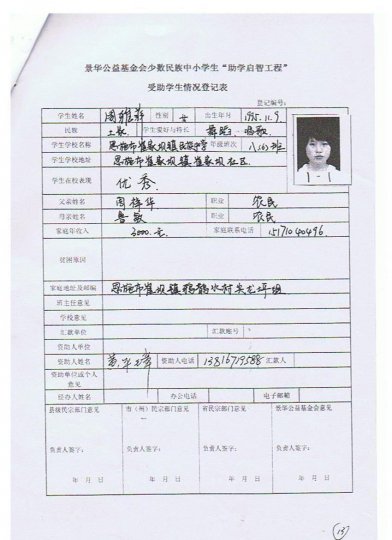 景华公益基金会少数民族中小学生“助学启智工程”
受助学生情况登记表
登记编号:
学生姓名 周雅萍 性别 女 出生年月 1995.11.9
民族 土家 学生爱好与特长 舞蹈、唱歌
学生学校名称 恩施市崔家坝镇民族中学 年级班次 八(6)班
学生学校地址 恩施市崔家坝镇崔家坝社区
学生在校表现 优秀.
父亲姓名 周 华 职业 农民
母亲姓名 职业 农民
家庭年收入 3000.元 家庭联系电话 15171040496
贫困原因
家庭地址及邮编 恩施市崔坝镇鸦鹊水村 坪组
班主任意见
学校意见
汇款单位 汇款账号
资助人单位
资助人姓名 资助人电话 13816719588 汇款人
资助单位或个人意见
经办人姓名 办公电话 电子邮箱
县级民宗部门意见 市（州）民宗部门意见 省民宗部门意见 景华公益基金会意见
负责人签字: 负责人签字: 负责人签字: 负责人签字:
年 月 日 年 月 日 年 月 日 年 月 日
(13)